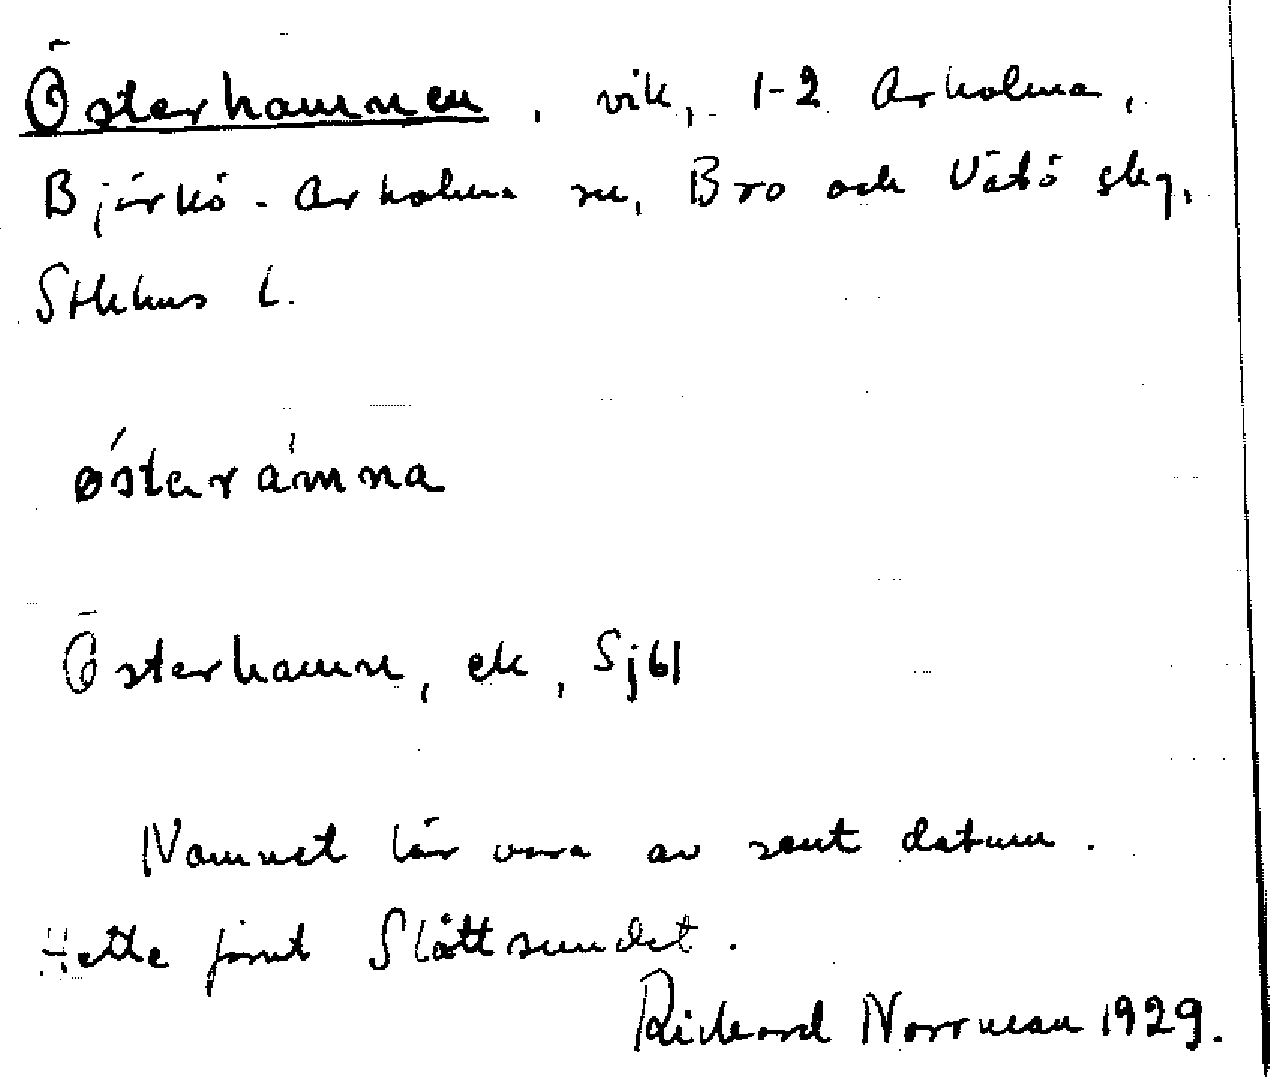 Österhamnen, vik, 1-2 Arholma,
Björkö-Arholma sn, Bro och Vätö skg,
Sthlms l.
østarámna
Österhamn, ek, Sjbl
Namnet lär vara av sent datum.
Hette förut Slåttsundet.
Rickard Norrman 1929.